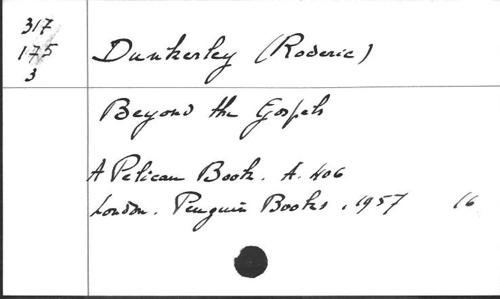 317
175
3
Dunkerley (Roderic)
Beyond the Gospels
A Pelican Book. A. 406
London. Penguin Books, 1957 16